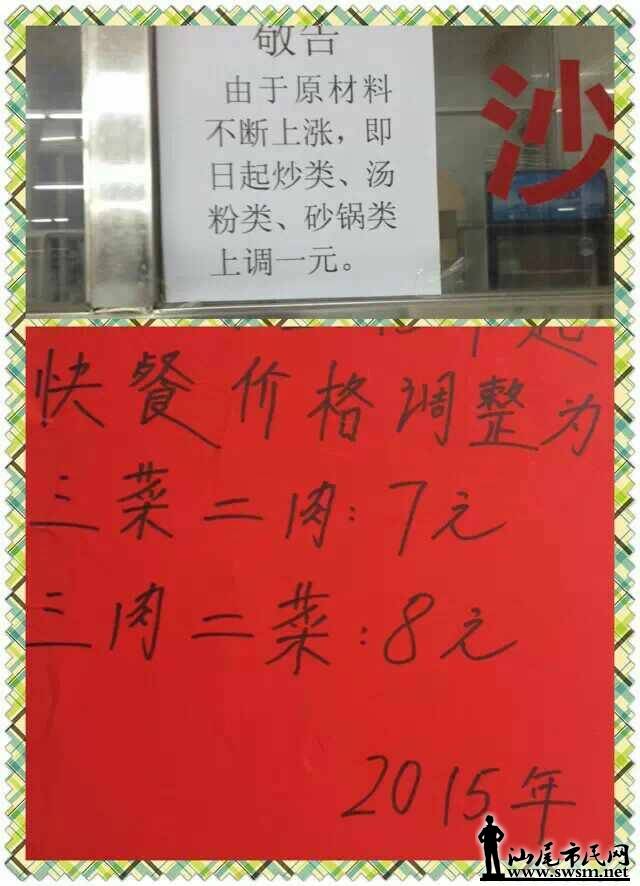 敬告
由于原材料
不断上涨，即
日起炒类、汤
粉类、砂锅类
上调一元。
沙
起
快餐价格调整为
三菜二肉：7元
三肉二菜：8元
2015年
汕尾市民网
www.swsm.net